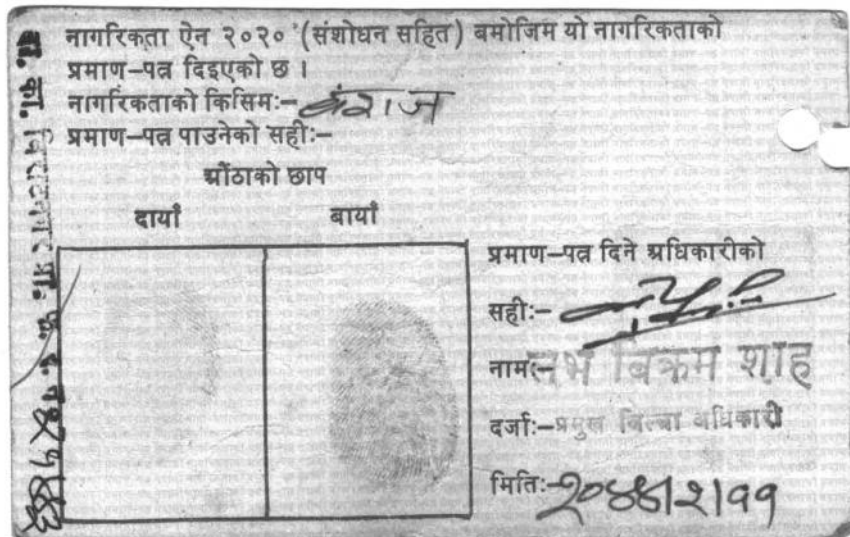 नागरिकता ऐन २०२० (संशोधन सहित) बमोजिम यो नागरिकताको
प्रमाण–पत्र दिइएको छ ।
नागरिकताको किसिमः– बंशज
प्रमाण–पत्र पाउनेको सहीः–
औंठाको छाप
दायाँ बायाँ
प्रमाण–पत्र दिने अधिकारीको
सहीः–
नामः– बिक्रम शाह
दर्जाः– प्रमुख जिल्ला अधिकारी
मितिः–